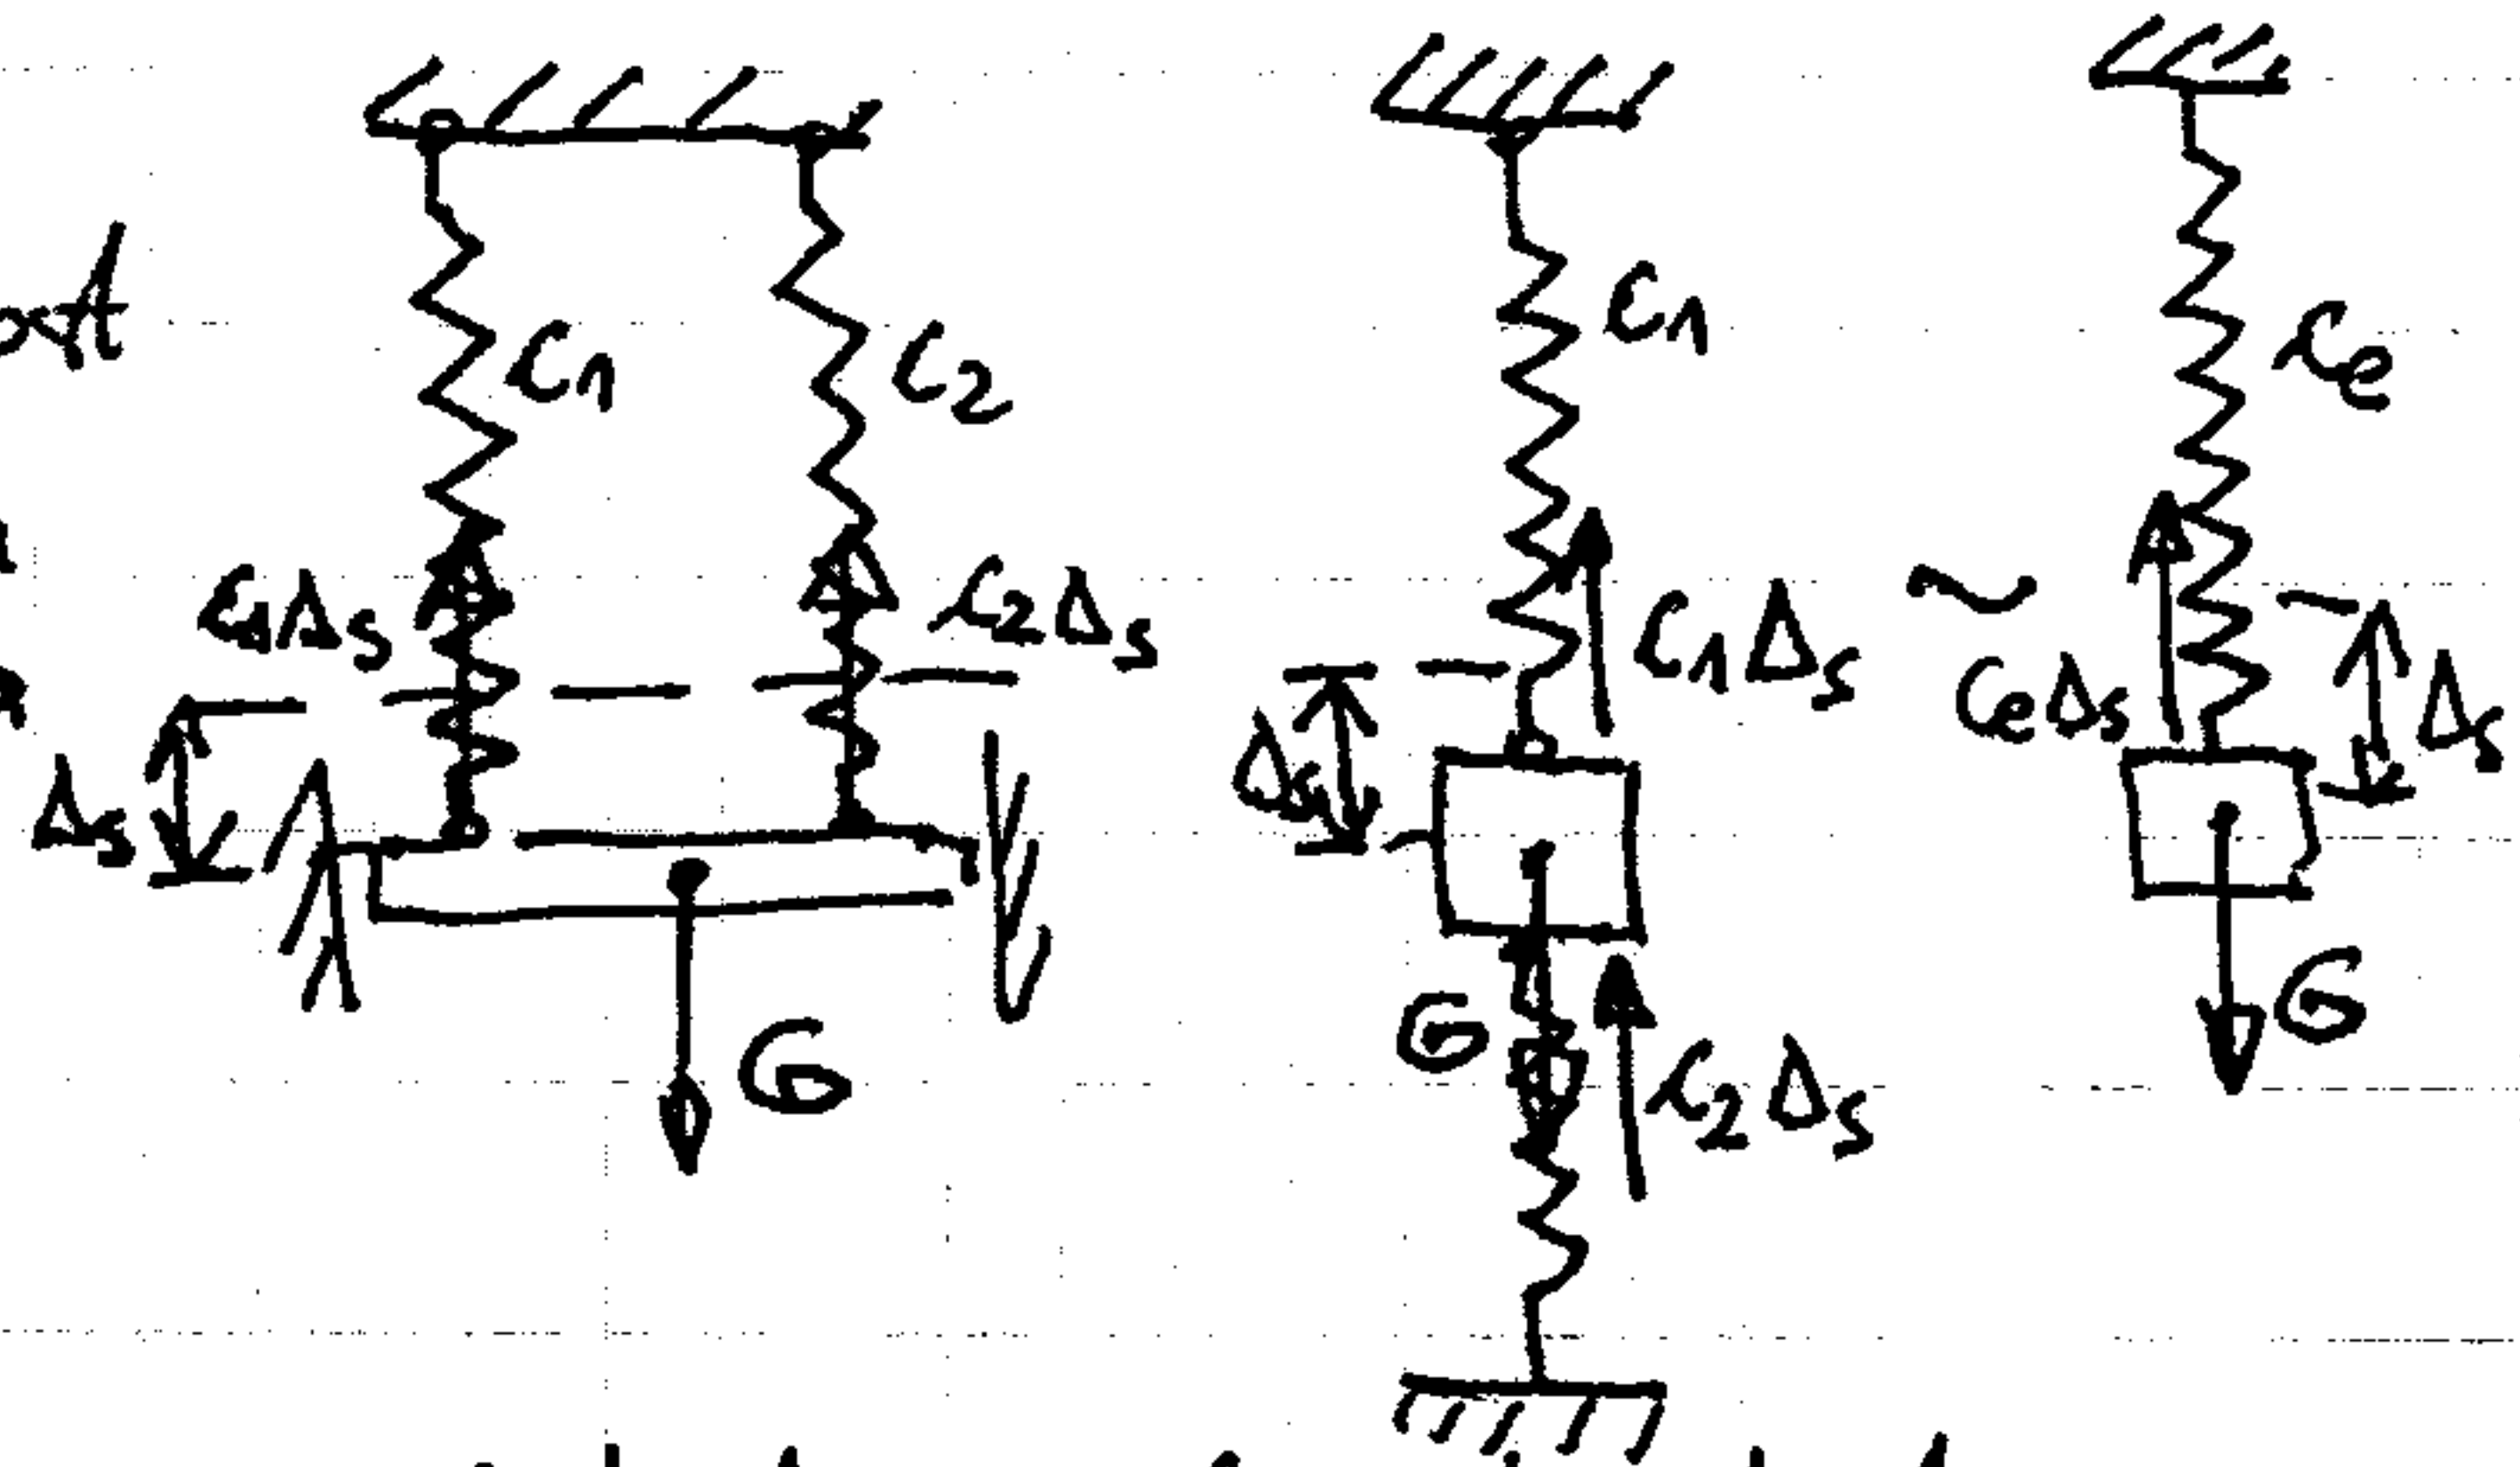 c1
c2
c1Δs
c2Δs
Δs
G
c1
c1Δs
Δs
G
c2Δs
~
ce
ceΔs
Δs
G